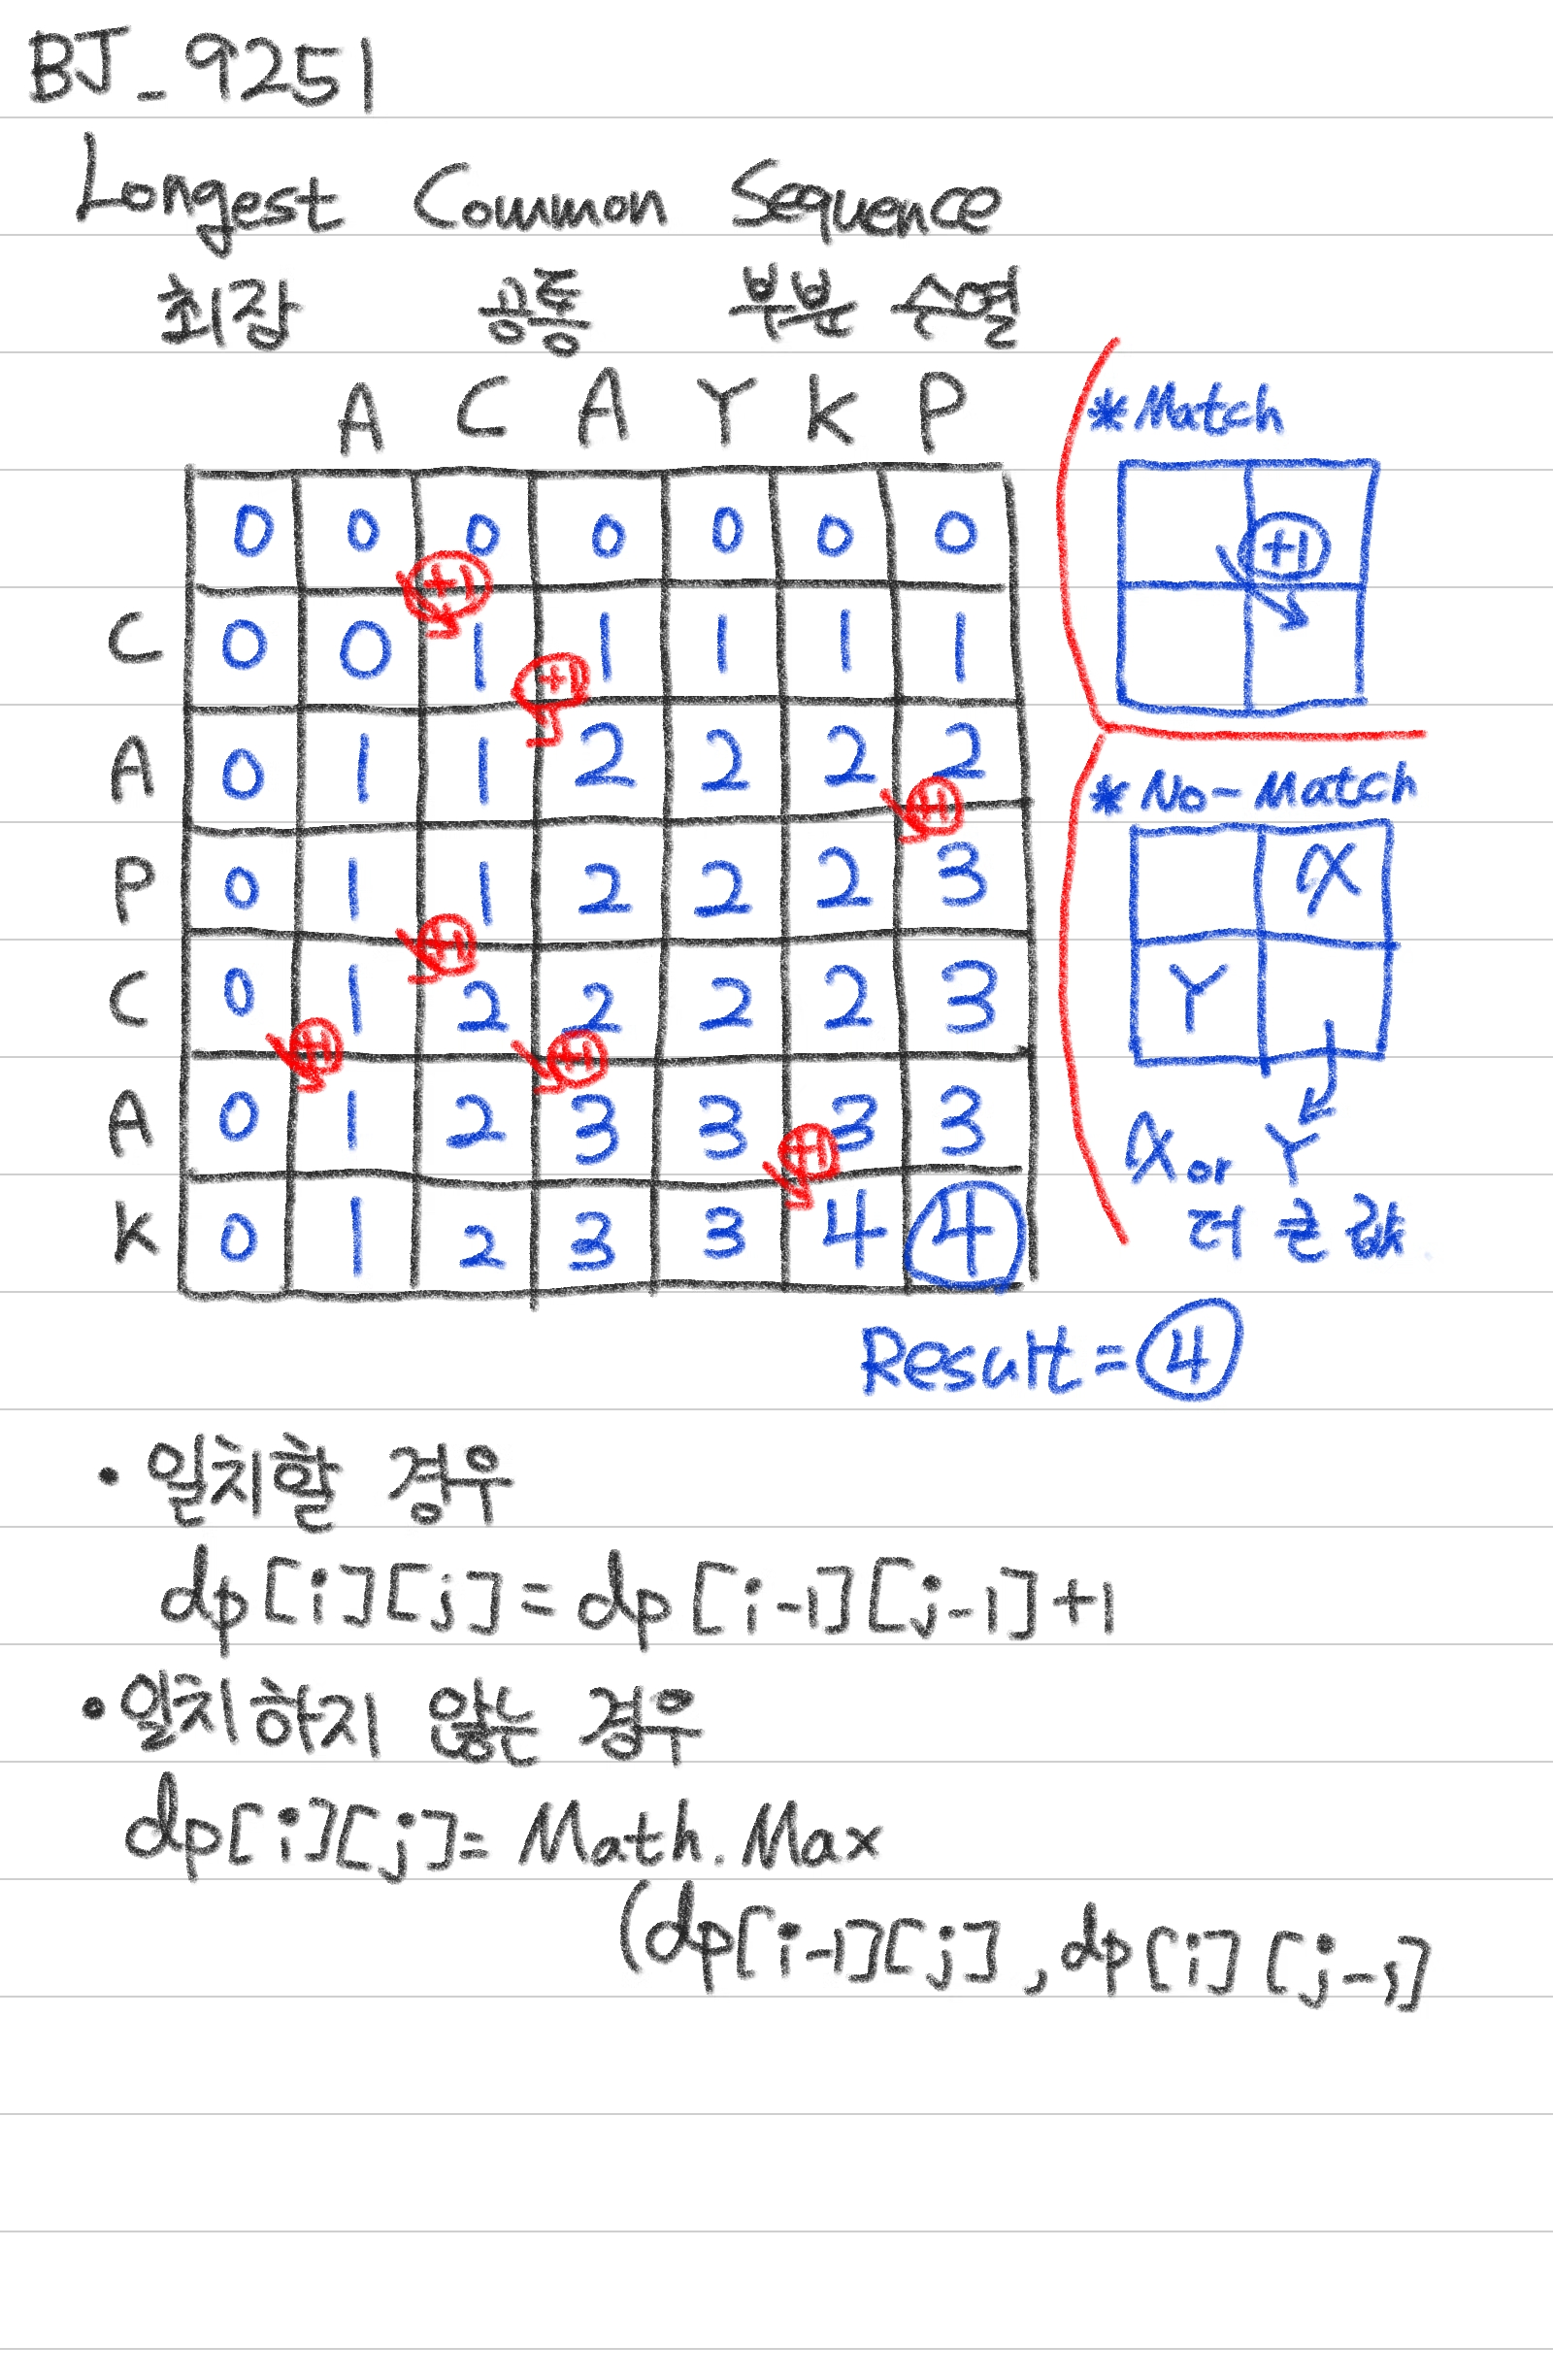 BJ_9251
Longest Common Sequence
최장 공통 부분 수열
A C A Y K P
0 0 0 0 0 0 0
+1
C 0 0 1 1 1 1 1
+1
A 0 1 1 2 2 2 2
+1
P 0 1 1 2 2 2 3
+1
C 0 1 2 2 2 2 3
+1 +1
A 0 1 2 3 3 3 3
+1
K 0 1 2 3 3 4 4
Result = 4
*Match
+1
* No-Match
X
Y
X or Y
더 큰 값
• 일치할 경우
dp[i][j] = dp[i-1][j-1]+1
• 일치하지 않는 경우
dp[i][j] = Math.Max
(dp[i-1][j], dp[i][j-1]